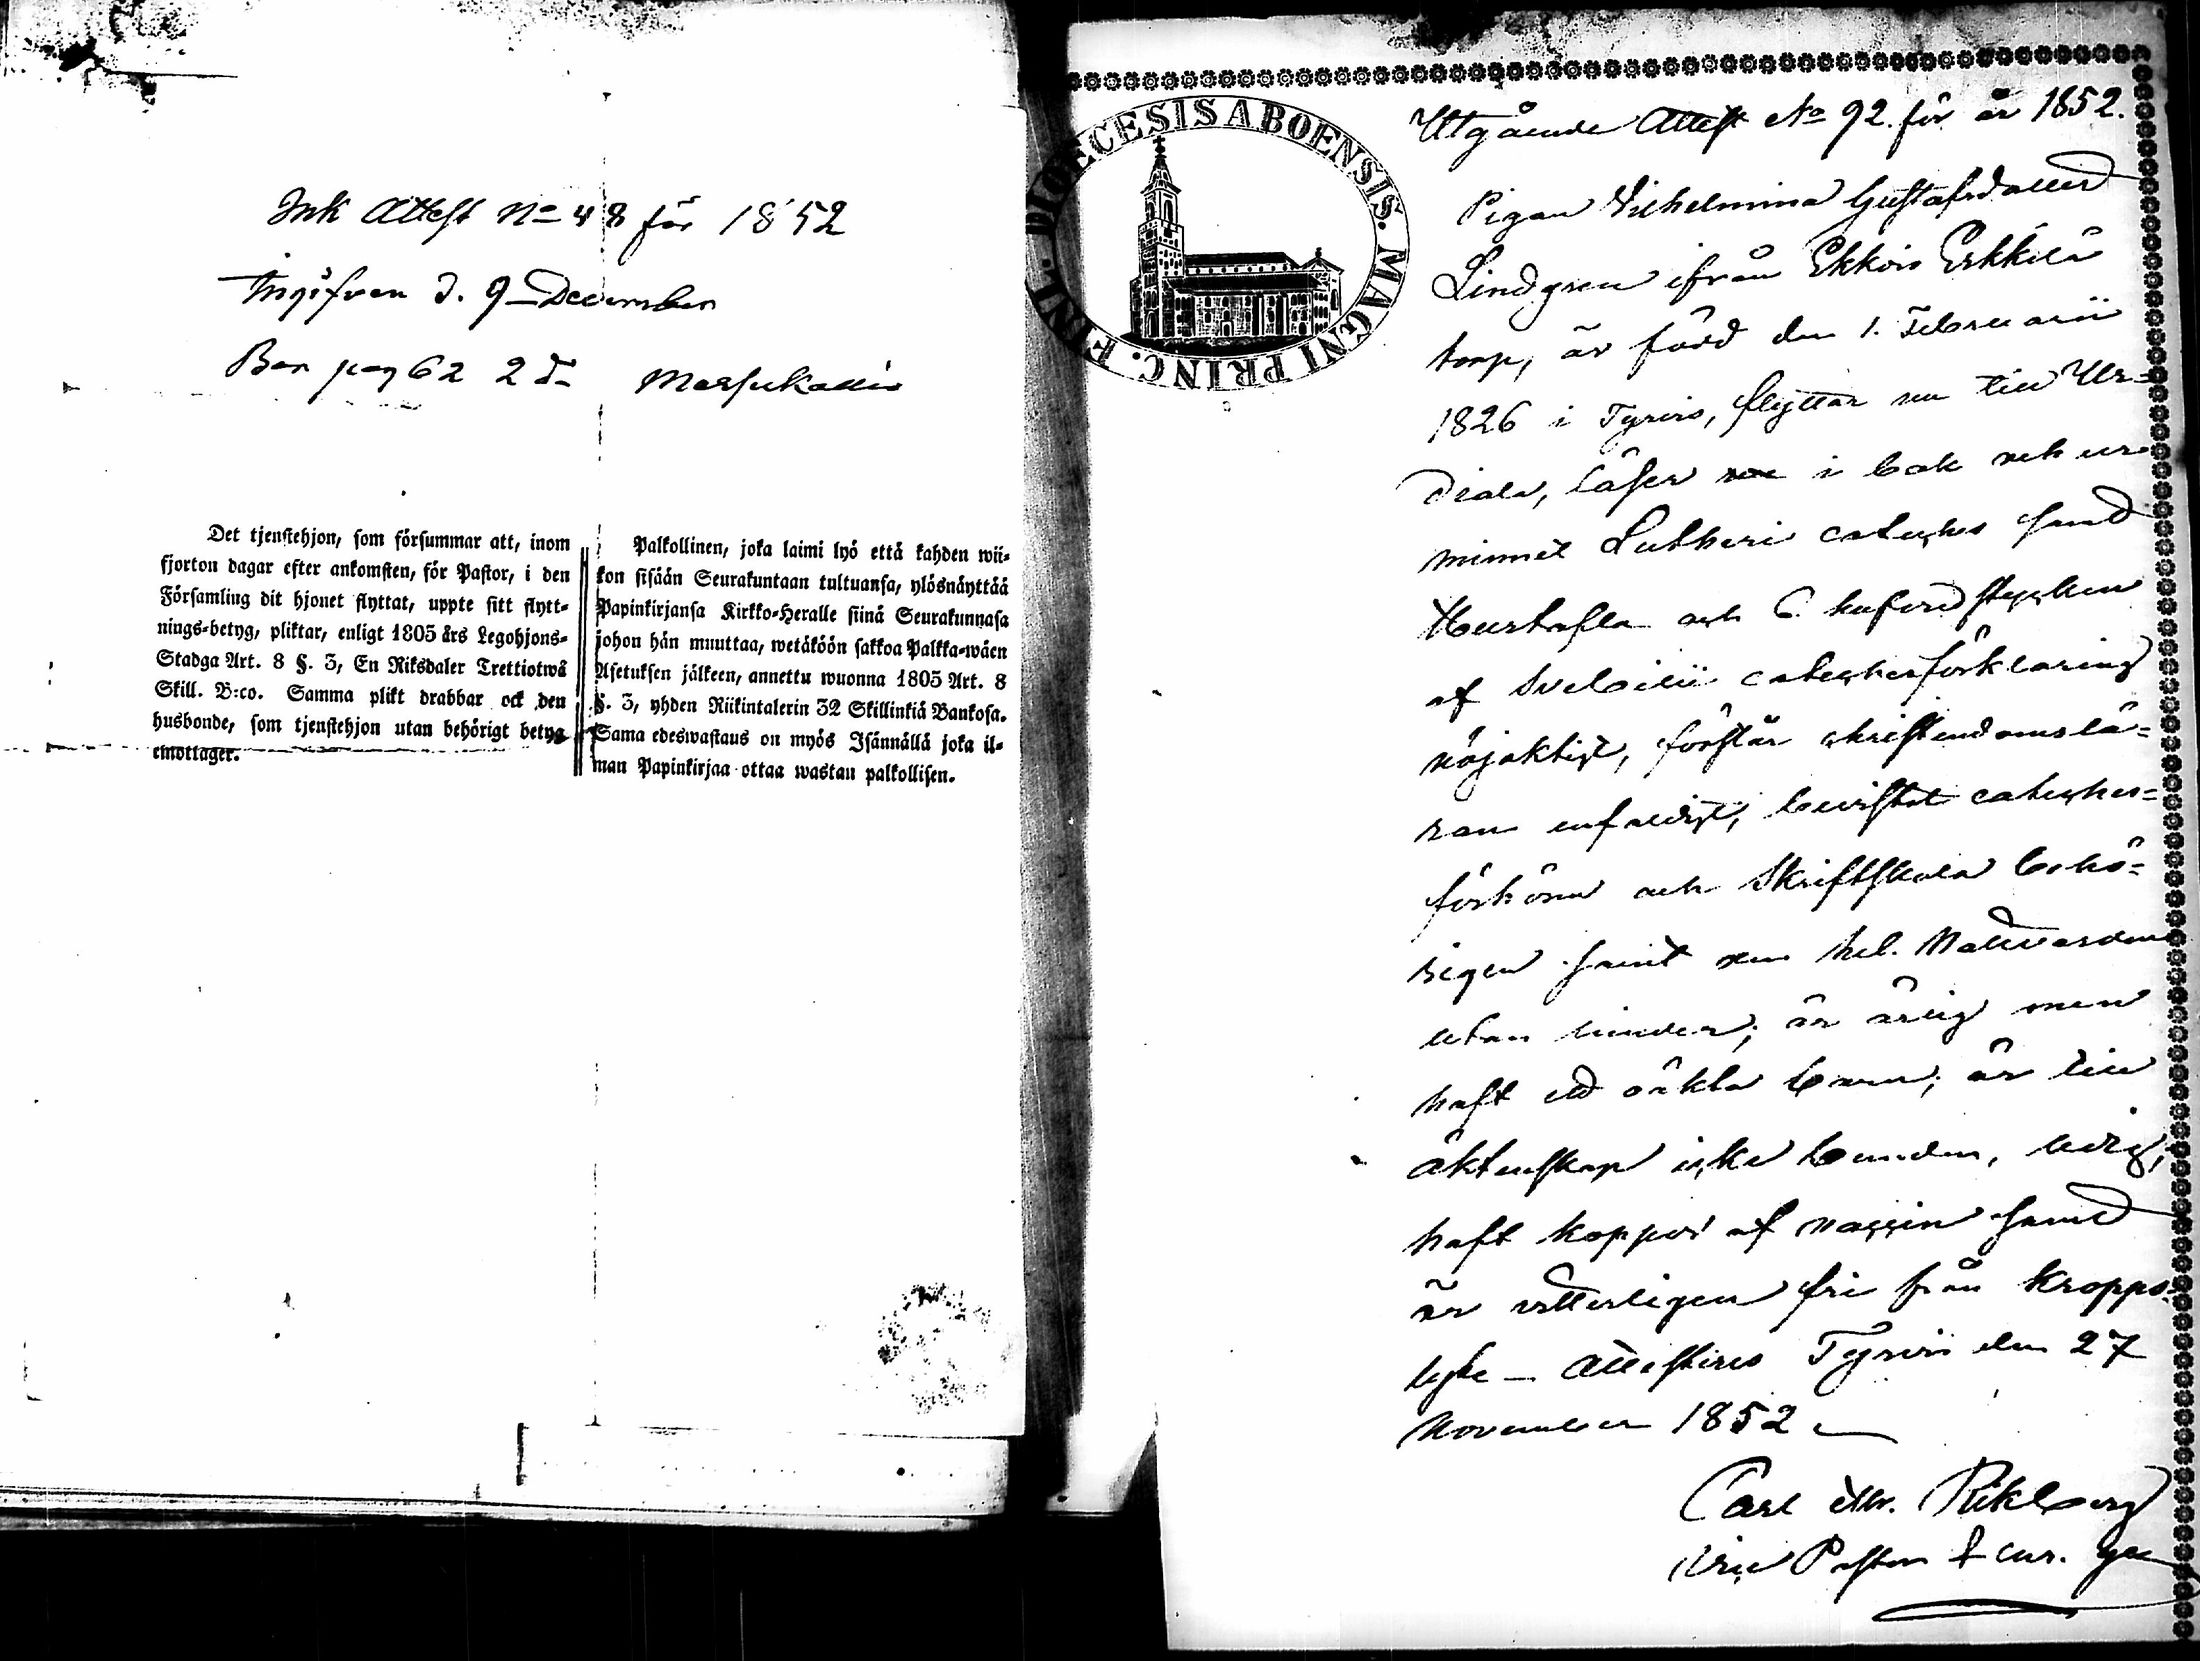 Ink Attest No 48 för 1852
Ingifven d. 9 December
pag 62 2 da
Det tjenstehjon, som försummar att, inom
fjorton dagar efter ankomsten, för Pastor, i den
Församling dit hjonet flyttat, uppte sitt flytt-
nings-betyg, pliktar, enligt 1805 års Legohjons-
Stadga Art. 8 §. 3, En Riksdaler Trettiotwå
Skill. B:co. Samma plikt drabbar ock den
husbonde, som tjenstehjon utan behörigt betyg
emottager.
Palkollinen, joka laimi lyö että kahden wii-
kon sisään Seurakuntaan tultuansa, ylösnäyttää
Papinkirjansa Kirkko-Heralle siinä Seurakunnasa
johon hän muuttaa, wetäköön sakkoa Palkka-wäen
Asetuksen jälkeen, annettu wuonna 1805 Art. 8
§. 3, yhden Riikintalerin 32 Skillinkiä Bankosa.
Sama edeswastaus on myös Isännällä joka il-
man Papinkirjaa ottaa wastan palkollisen.
FINL. DIOECESIS ABOENSIS. MAGNI PRINC.
Utgående Attest No 92. för år 1852.
Pigan Vilhelmina Gustafsdotter
Lindgren ifrån Ekkois Erkkilä
torp, är född den 1. Februarii
1826 i Tyrvis, flyttar nu till Ur-
diala, läser i bok och ur
minnet Lutheri cateches samt
Hustafla och 6 hufvudstycken
af Svebilii catechesförklaring
nöjaktigt, förstår christendomslä-
ran enfaldigt, bevistat cateches-
förhören och Skriftskola behö-
rigen samt den hel. Nattvarden
utan hinder; är ärlig men
haft ett oäkta barn; är till
äktenskap icke bunden, ledig,
haft koppor af vaccin samt
är vitterligen fri från kropps-
lyte – Attesteras Tyrvis den 27
November 1852
Carl
Vice Pastor &